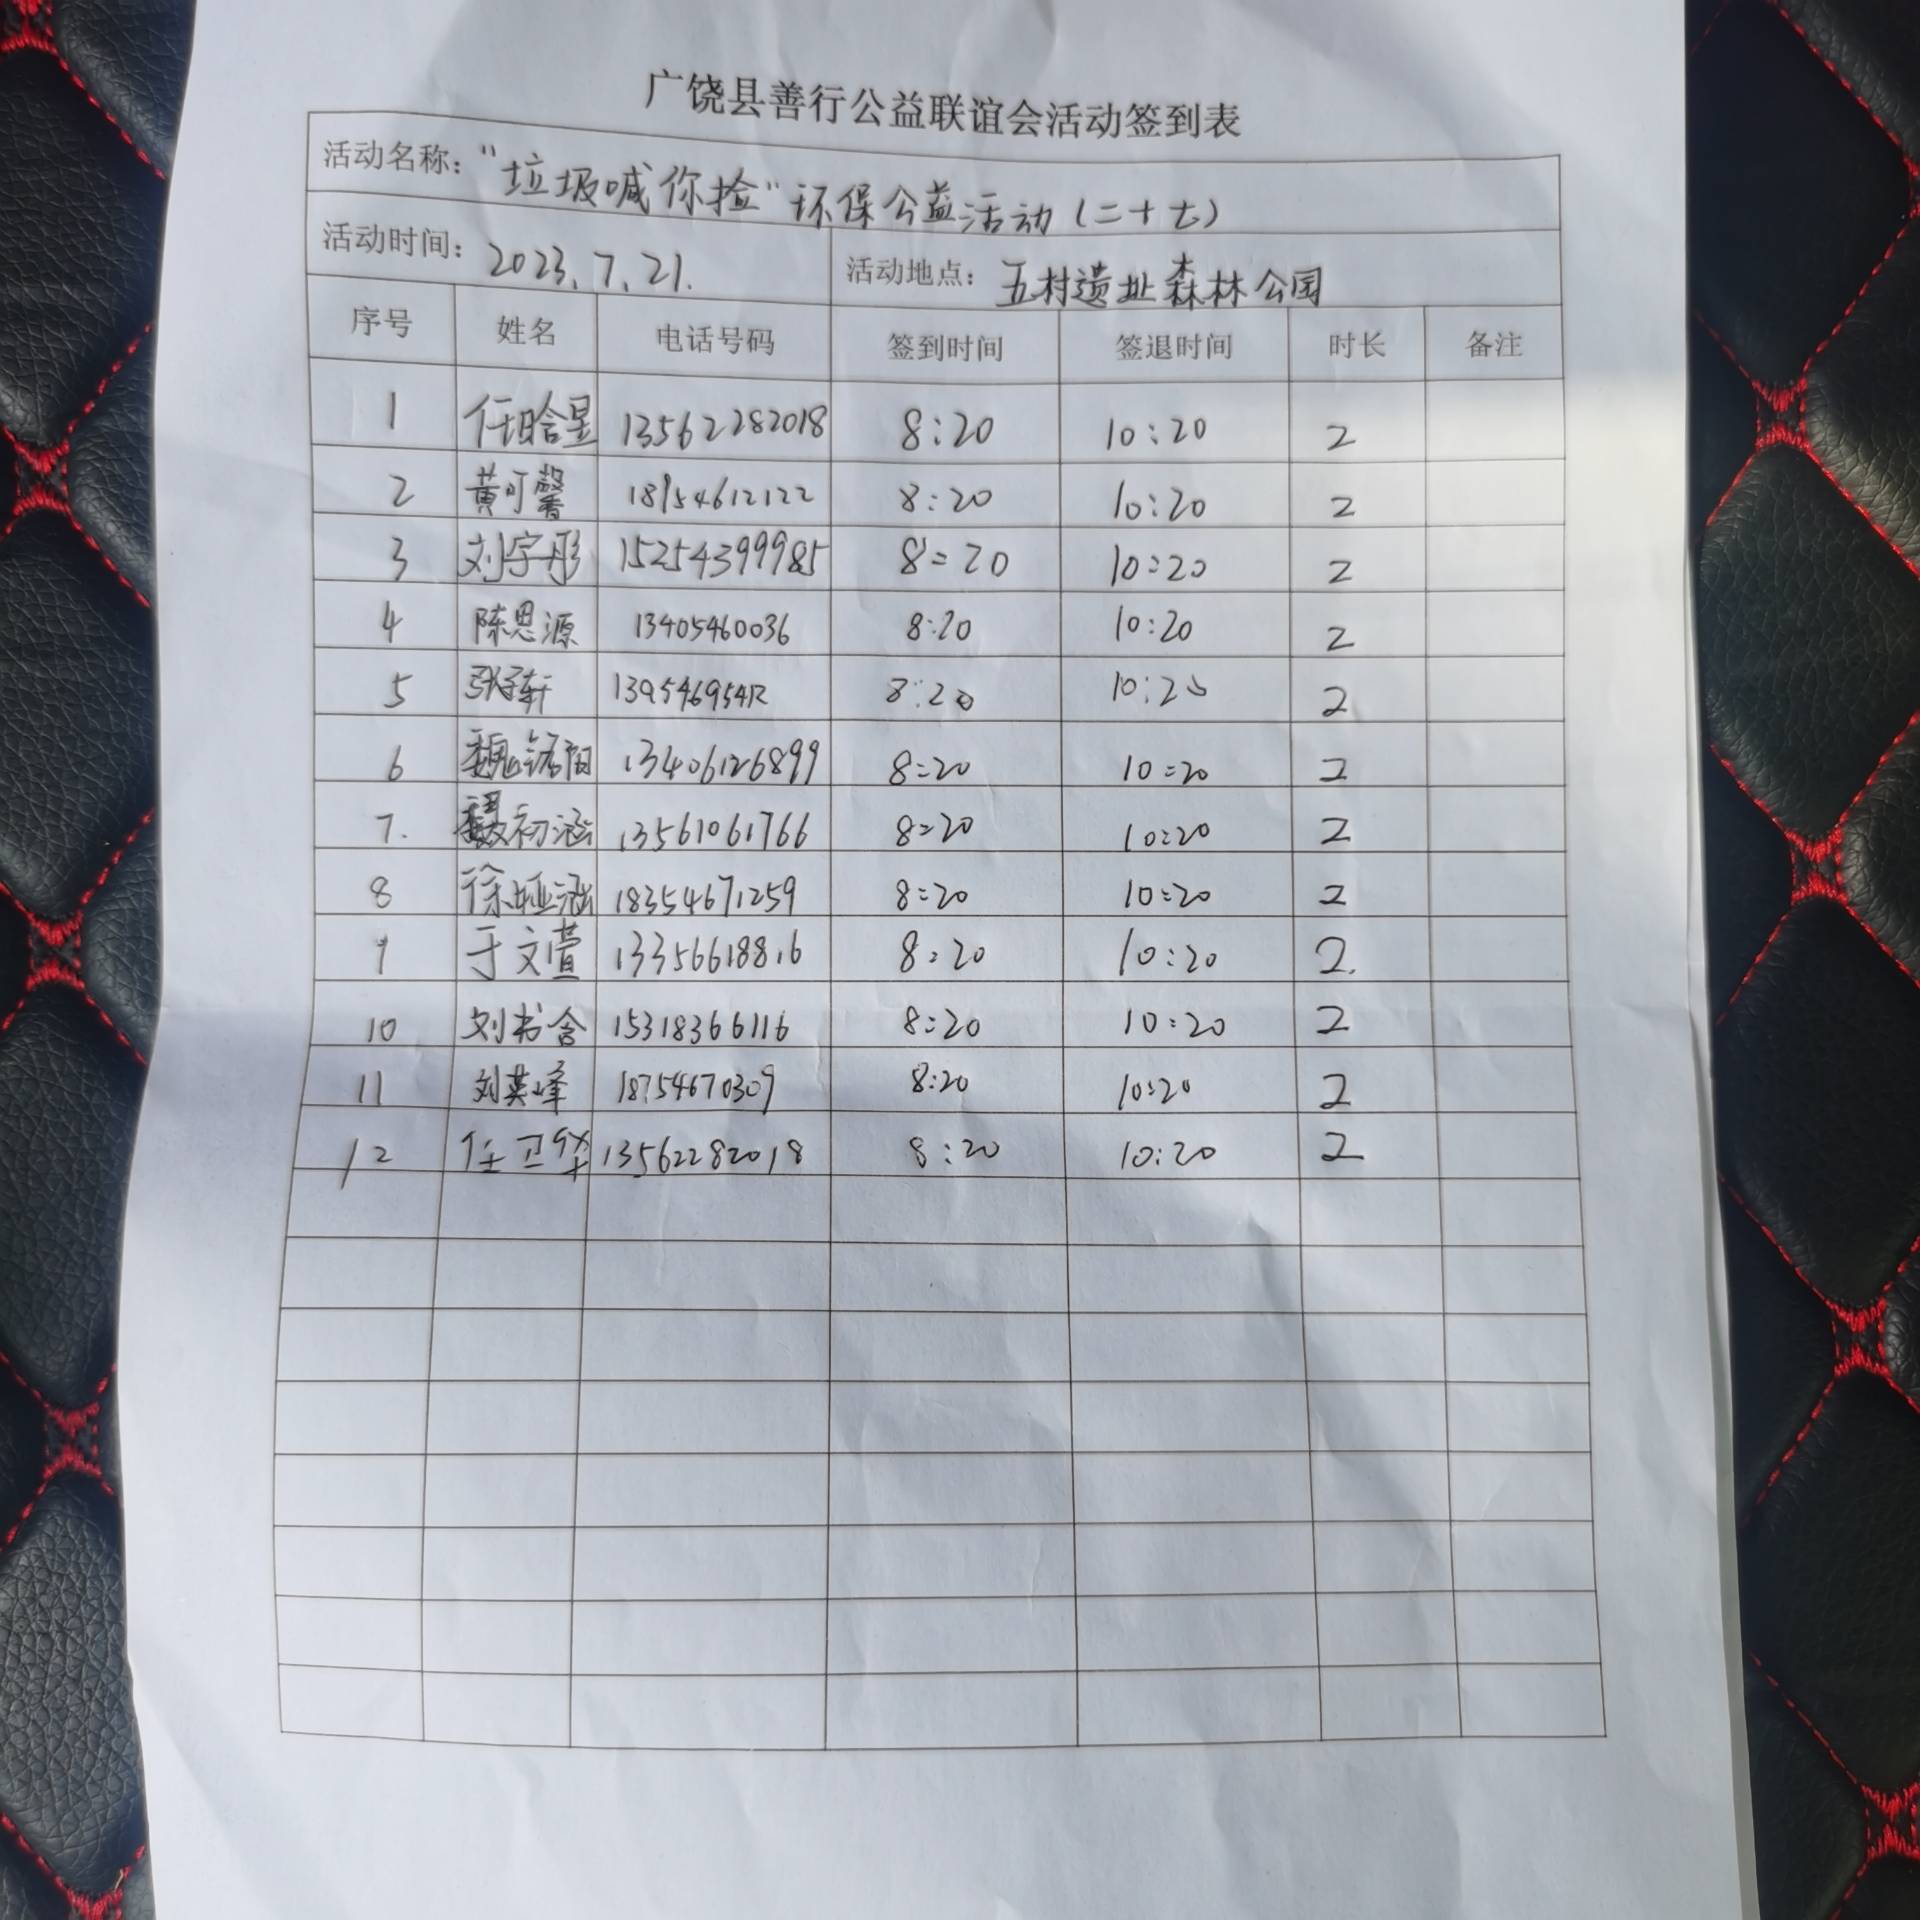 广饶县善行公益联谊会活动签到表
活动名称：“垃圾喊你捡”环保公益活动（二十七）
活动时间：2023.7.21. 活动地点：五村遗址森林公园
序号 姓名 电话号码 签到时间 签退时间 时长 备注
1 任晗昱 13562282018 8:20 10:20 2
2 黄可馨 18954612122 8:20 10:20 2
3 刘宇彤 15254399985 8:20 10:20 2
4 陈思源 13405460036 8:20 10:20 2
5 8:20 10:20 2
6 魏铭阳 13406126899 8:20 10:20 2
7. 初涵 13561061766 8:20 10:20 2
8 徐娅涵 18354671259 8:20 10:20 2
9 于文萱 13356618816 8:20 10:20 2.
10 刘书含 15318366116 8:20 10:20 2
11 刘英峰 18754670309 8:20 10:20 2
12 任卫华 13562282018 8:20 10:20 2